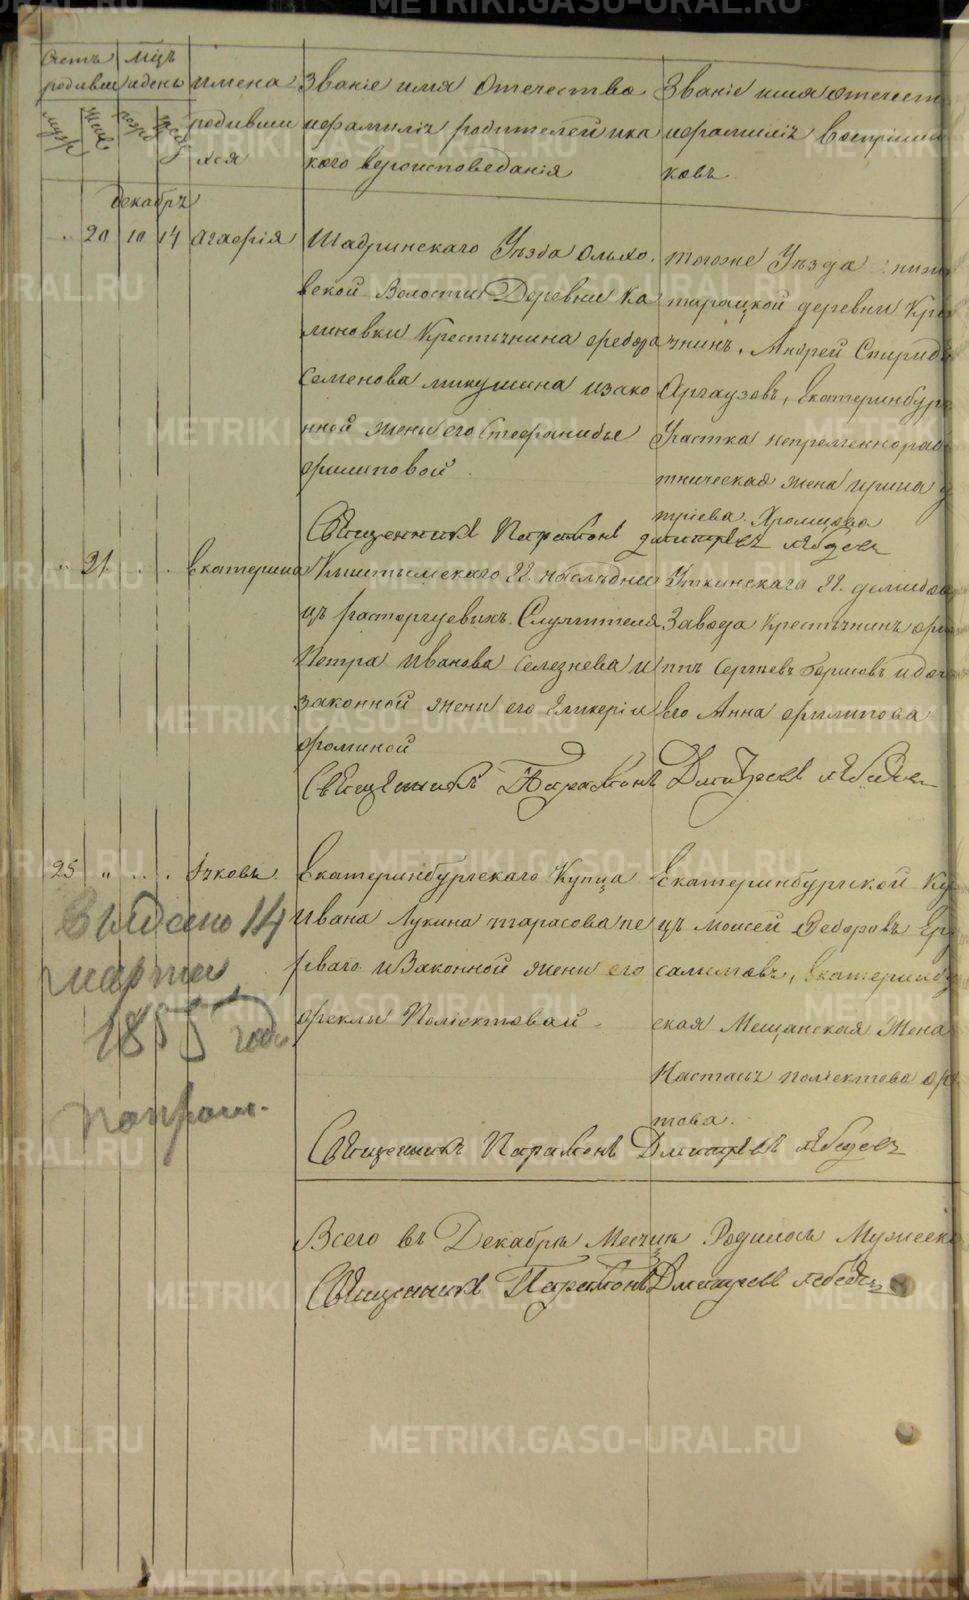 METRIKI.GASO-URAL.RU
Счетъ
родивши
муж
жен
мцъ
идень
рожд
крещ
имена
родивши
хся
Званіе имя Отечество
ифамиліи родителей ика
кого вероисповеданія
Званіе имя отечест
ифамиліи Воспріемни
ковъ
декабрь
20 10 14 агафія
Шадринскаго Уѣзда Ольхо
вской Волости Деревни Ка
линовки Крестьянина федора
Семенова микушина изако
нной жены его Стефаниды
филиповой
тогоже Уѣзда
тарацкой деревни Кре
янинъ, Андрей Спиридо
Аргаузовъ, Екатеринбург
Участка непременнорабо
тническая жена ирина д
тріева Хромцова
Священникъ Парамонъ дмитревъ лебедевъ
21 Екатерина
Кыштымскаго наслѣдни
цъ расторгуевыхъ Служителя
Петра Иванова Селезнева и
законной жены его Гликеріи
фоминой
Уткинскаго демидова
Завода Крестьянинъ
Сергѣевъ идочь
Его Анна филипова
Священникъ Парамонъ Дмитревъ лебедевъ
25 " Іяковъ
Екатеринбургскаго Купца
Ивана Лукина тарасова пе
рваго иЗаконной жены его
феклы Поліектовой
Екатеринбургской Ку
цъ Моисей Федоровъ Еру
салимовъ, Екатеринбу
ская Мещанская Жена
Настасья поліектова
това.
Выдано 14
марта
1855 года
Священникъ Парамонъ Дмитревъ лебедевъ
Всего въ Декабрѣ Месяцѣ Родилось Мужеск
Священникъ Парамонъ Дмитревъ лебедевъ